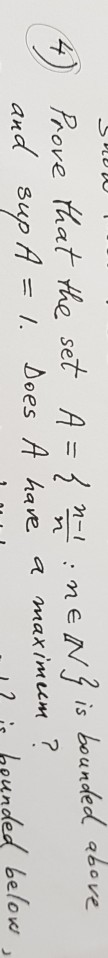 show
④ Prove that the set A = { n-1/n : n ∈ ℕ } is bounded above
and sup A = 1. Does A have a maximum?
is bounded below,